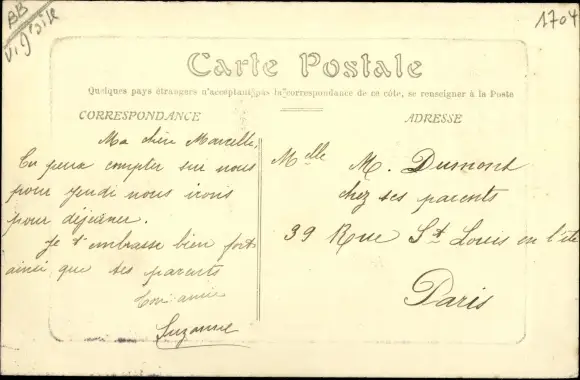 BB
1704
Carte Postale
Quelques pays étrangers n'acceptant pas la correspondance de ce côté, se renseigner à la Poste
CORRESPONDANCE
Ma chère Marcelle,
Tu peux compter sur nous
pour jeudi nous irons
pour déjeuner.
Je t'embrasse bien fort
ainsi que tes parents
Ton amie
Suzanne
ADRESSE
Melle M. Dumont
chez ses parents
39 Rue St Louis en l'île
Paris